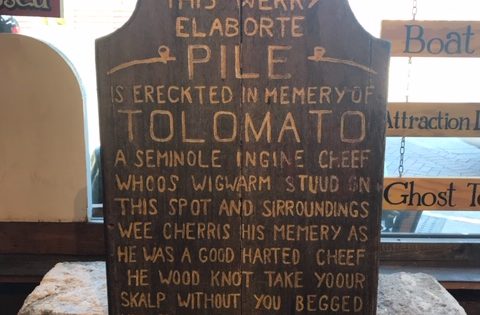 THIS WERRY
ELABORTE
PILE
IS ERECKTED IN MEMERY OF
TOLOMATO
A SEMINOLE INGINE CHEEF
WHOOS WIGWARM STUUD ON
THIS SPOT AND SIRROUNDINGS
WEE CHERRIS HIS MEMERY AS
HE WAS A GOOD HARTED CHEEF
HE WOOD KNOT TAKE YOOUR
SKALP WITHOUT YOU BEGGED
Boat
Attraction
Ghost